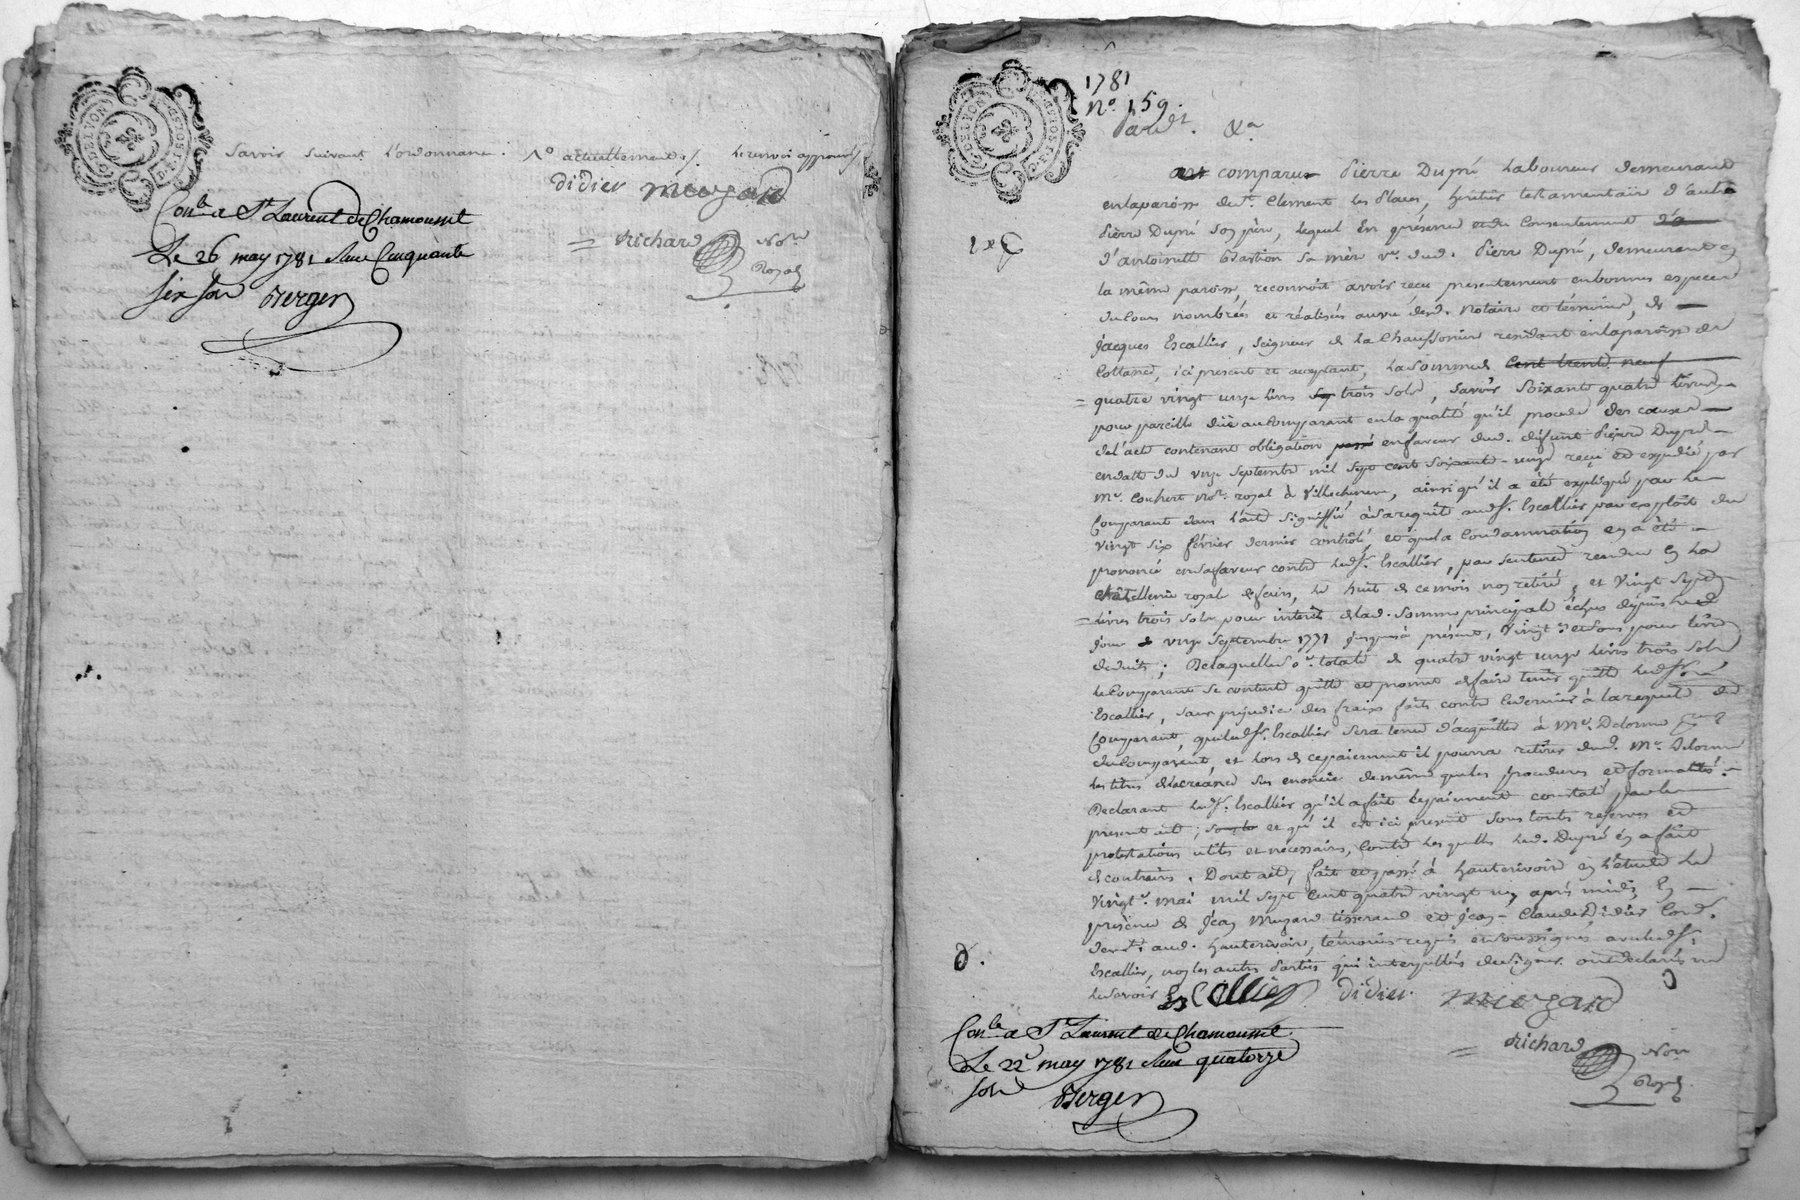 G. DE LYON
DIX SOLS P.
savoir suivant l'ordonnance. 1° actuellement /. le renvoi approuvé /.
didier muzard
= Richard Nore
Royal
Conlé a St Laurent de Chamousset
Le 26 may 1781 Reçu Cinquante
six sols Berger
G. DE LYON
1781
N° 159.
est comparu Pierre Dupré Laboureur demeurant
en la paroisse de St. Clement les Places, héritier testamentaire d'autre
Pierre Dupré son père, lequel en présence et du Consentement d'a
d'antoinette Bastion sa mère ve. dud. Pierre Dupré, demeurante en
la même paroisse, reconnoit avoir reçu présentement en bonnes especes
du Cours nombrées et réalisés au vu desd. Notaire et témoins, de
Jacques Escallier, seigneur de la Chaussonier residant en la paroisse de
Cottance, ici present et acceptant, la somme de Cent trente neuf
= quatre vingt unze livres trois sols, savoir soixante quatre livres
pour pareille düe au Comparant en la qualité qu'il procede des causes
de l'acte contenant obligation passé en faveur dud. défunt Pierre Dupré
en datte du unze septembre mil sept cent soixante-unze reçu et expédié par
Me. Couhert nore. royal à Villechenève, ainsi qu'il a été expliqué par le
Comparant dans l'acte signiffié à sa requête aud. sr. Escallier par exploit du
vingt six février dernier contrôlé et que la Condamnation en a été
prononcé en sa faveur contre led. sr. Escallier, par sentence rendue en la
châtellenie royal de feurs, le huit de ce mois non retiré, et vingt sept
= livres trois sols pour interêt de lad. somme principale échus depuis led
jour de unze septembre 1771 jusques à présent, vingt: et sous pour livre
deduits; De laquelle so.e totale de quatre vingt unze livres trois sols
le Comparant se contente quitte et promet de faire tenir quitte led. sr.
Escallier, sans préjudice des fraix faits contre ce dernier à la requête du
Comparant, que led. sr. Escallier sera tenu d'acquitter à Me. Delorme
du Comparant, et lors de ce paiement il pourra retirer dud. Me. Delorme
les titres de la créance sus énoncée de même que les procedures et formalités.
Declarant led. sr. Escallier qu'il a fait le paiement constaté par le
present acte, sous la et qu'il est ici present sous toutes reserves et
protestations utiles et nécessaires, Contre lesquelles led. Dupré en a fait
de contraires. Dont acte, fait et passé à hauterivoir en l'étude le
Vingt: mai mil sept Cent quatre vingt un, après midi, En
présence de Jean Muzard tisserand et Jean-Claude Didier Cord.
demt. aud. hauterivoir, témoins requis, en soussignés avec led. sr.
Escallier, non les autres Parties qui interpellées de signer ont declaré ne
le savoir Escallier didier muzard
= Richard Nore
Royal
Conlé a St Laurent de Chamousset
Le 22 may 1781 Reçu quatorze
sols Berger